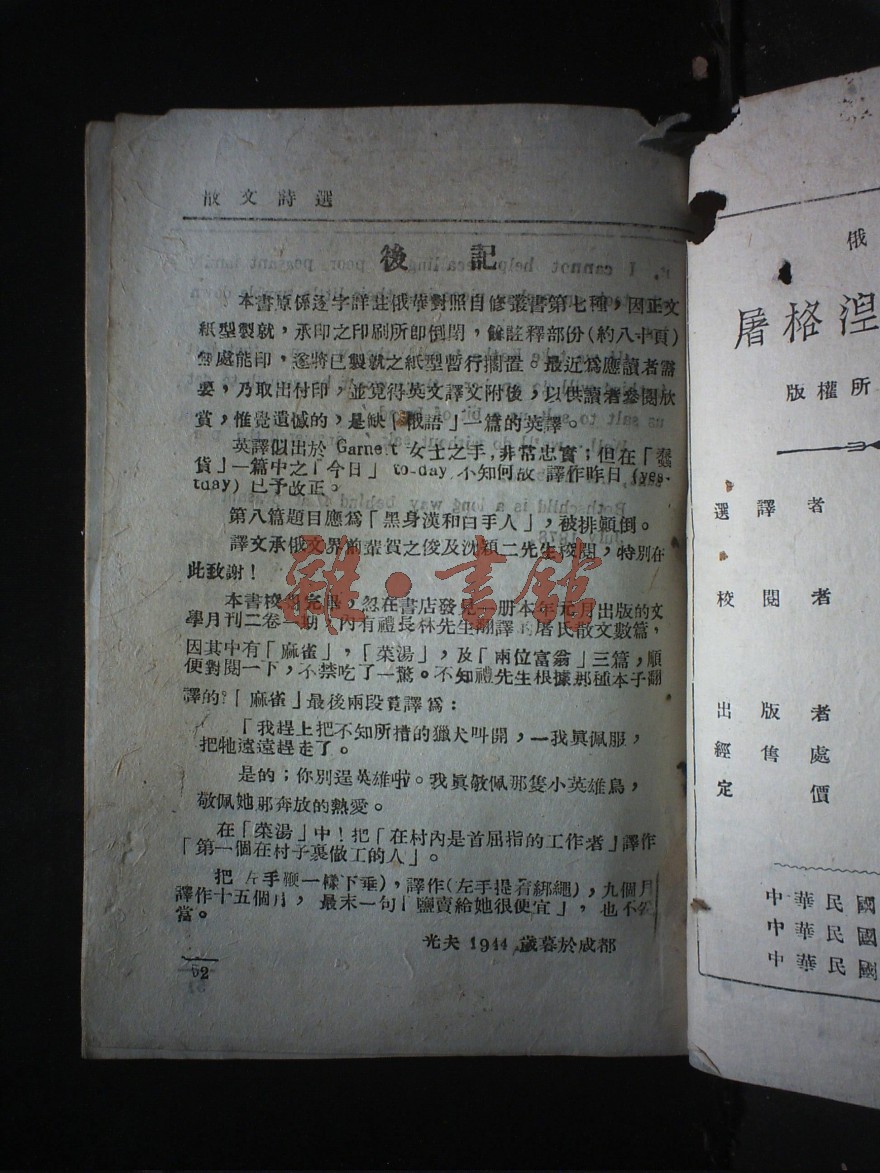 散文詩選
後記
本書原係逐字詳註俄華對照自修叢書第七種，因正文
紙型製就，承印之印刷所即倒閉，餘註釋部份(約八十頁)
無處能印，遂將已製就之紙型暫行擱置。最近為應讀者需
要，乃取出付印，並覓得英文譯文附後，以供讀者參閱欣
賞，惟覺遺憾的，是缺「俄語」一篇的英譯。
英譯似出於 Garnett 女士之手，非常忠實；但在「蠢
貨」一篇中之「今日」 to-day 不知何故 譯作昨日(yes-
tday) 已予改正。
第八篇題目應為「黑身漢和白手人」，被排顛倒。
譯文承俄文界前輩賀之俊及沈穎二先生校閱，特別在
此致謝！
本書校完畢，忽在書店發見一册本年元月出版的文
學月刊二卷一期，內有禮長林先生翻譯的屠氏散文數篇，
因其中有「麻雀」，「菜湯」，及「兩位富翁」三篇，順
便對閱一下，不禁吃了一驚。不知禮先生根據那種本子翻
譯的？「麻雀」最後兩段竟譯為：
「我趕上把不知所措的獵犬叫開，—我眞佩服，
把牠遠遠趕走了。
是的；你別逞英雄啦。我眞敬佩那隻小英雄鳥，
敬佩她那奔放的熱愛。
在「菜湯」中！把「在村內是首屈指的工作者」譯作
「第一個在村子裏做工的人」。
把 左手鞭一樣下垂)，譯作(左手提着綁繩)，九個月
譯作十五個月， 最末一句「鹽賣給她很便宜」，也不妥
當。
光夫 1944 歲暮於成都
52
俄
屠格涅
版權所
選譯者
校閱者
出版者
經售處
定價
中華民國
中華民國
中華民國
雜·書館